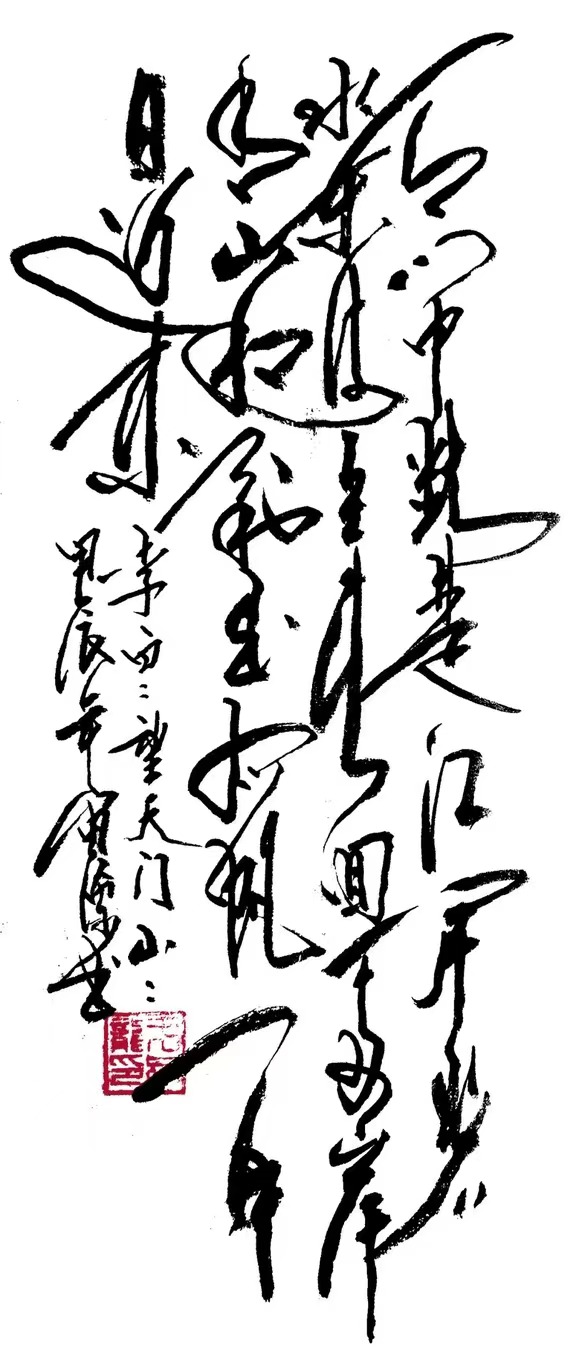 天门中断楚江开碧
水东流至此回两岸
青山相对出孤帆一片
日边来
李白：望天门山：
辰年 书